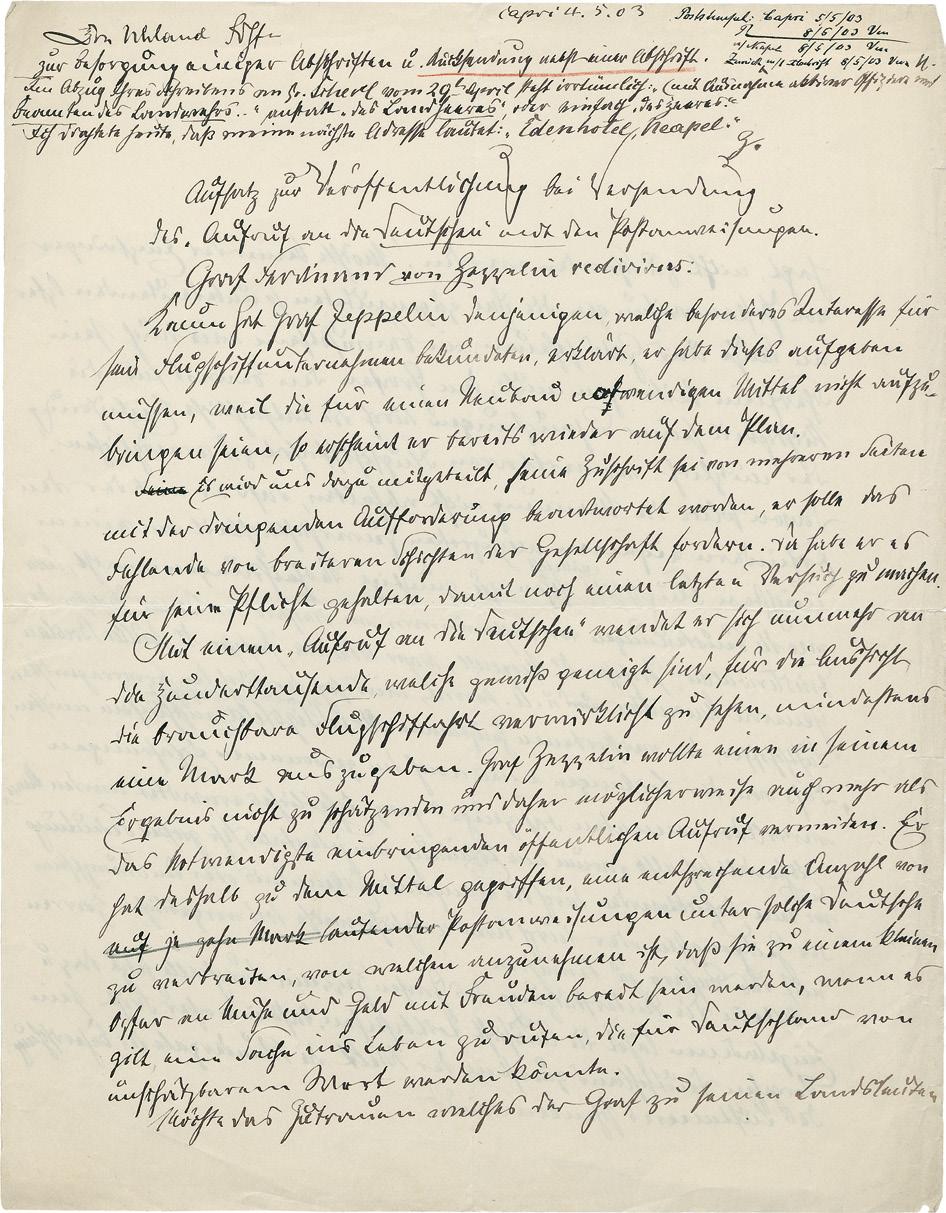 Capri 4. 5. 03
Poststempel: Capri 5/5/03
8/5/03 Vm
n/Neapel 8/5/03 Vm
Zurück m/1 Abschrift 8/5/03 Vm U.
Herrn Uhland
zur Besorgung einiger Abschriften u. Rücksendung nebst einer Abschrift.
Im Abzug Ihres Schreibens an Hr. Scherl vom 29ten April steht irrtümlich: (mit Ausnahme aktiver Offiziere und
Beamten des Landwehrs..." anstatt „des Landheeres" oder einfach „des Heeres."
Ich drahtete heute, daß meine nächste Adresse lautet: „Edenhotel, Neapel."
Z.
Aufsatz zur Veröffentlichung bei Versendung
des „Aufruf an die Deutschen" mit den Postanweisungen.
Graf Ferdinand von Zeppelin redivivus.
Kaum hat Graf Zeppelin denjenigen, welche besonderes Interesse für
sein Flugschiffunternehmen bekundeten, erklärt, er habe dieses aufgeben
müssen, weil die für einen Neubau notwendigen Mittel nicht aufzu-
bringen seien, so erscheint er bereits wieder auf dem Plan.
Seine Es wird uns dazu mitgeteilt, seine Zuschrift sei von mehreren Seiten
mit der dringenden Aufforderung beantwortet worden, er solle das
Fehlende von breiteren Schichten der Gesellschaft fordern. Da habe er es
für seine Pflicht gehalten, damit noch einen letzten Versuch zu machen.
Mit einem „Aufruf an die Deutschen" wendet er sich nunmehr an
die Hunderttausende, welche gewiß geneigt sind, für die Aussicht
die brauchbare Flugschiffahrt verwirklicht zu sehen, mindestens
eine Mark auszugeben. Graf Zeppelin wollte einen in seinem
Ergebnis nicht zu schätzenden und daher möglicherweise auch mehr als
das Notwendigste einbringenden öffentlichen Aufruf vermeiden. Er
hat deshalb zu dem Mittel gegriffen, eine entsprechende Anzahl von
auf je zehn Mark lautender Postanweisungen unter solche Deutsche
zu verbreiten, von welchen anzunehmen ist, daß sie zu einem kleinen
Opfer an Mühe und Geld mit Freuden bereit sein werden, wenn es
gilt, eine Sache ins Leben zu rufen, die für Deutschland von
unschätzbarem Wert werden könnte.
Möchte das Zutrauen welches der Graf zu seinen Landsleuten